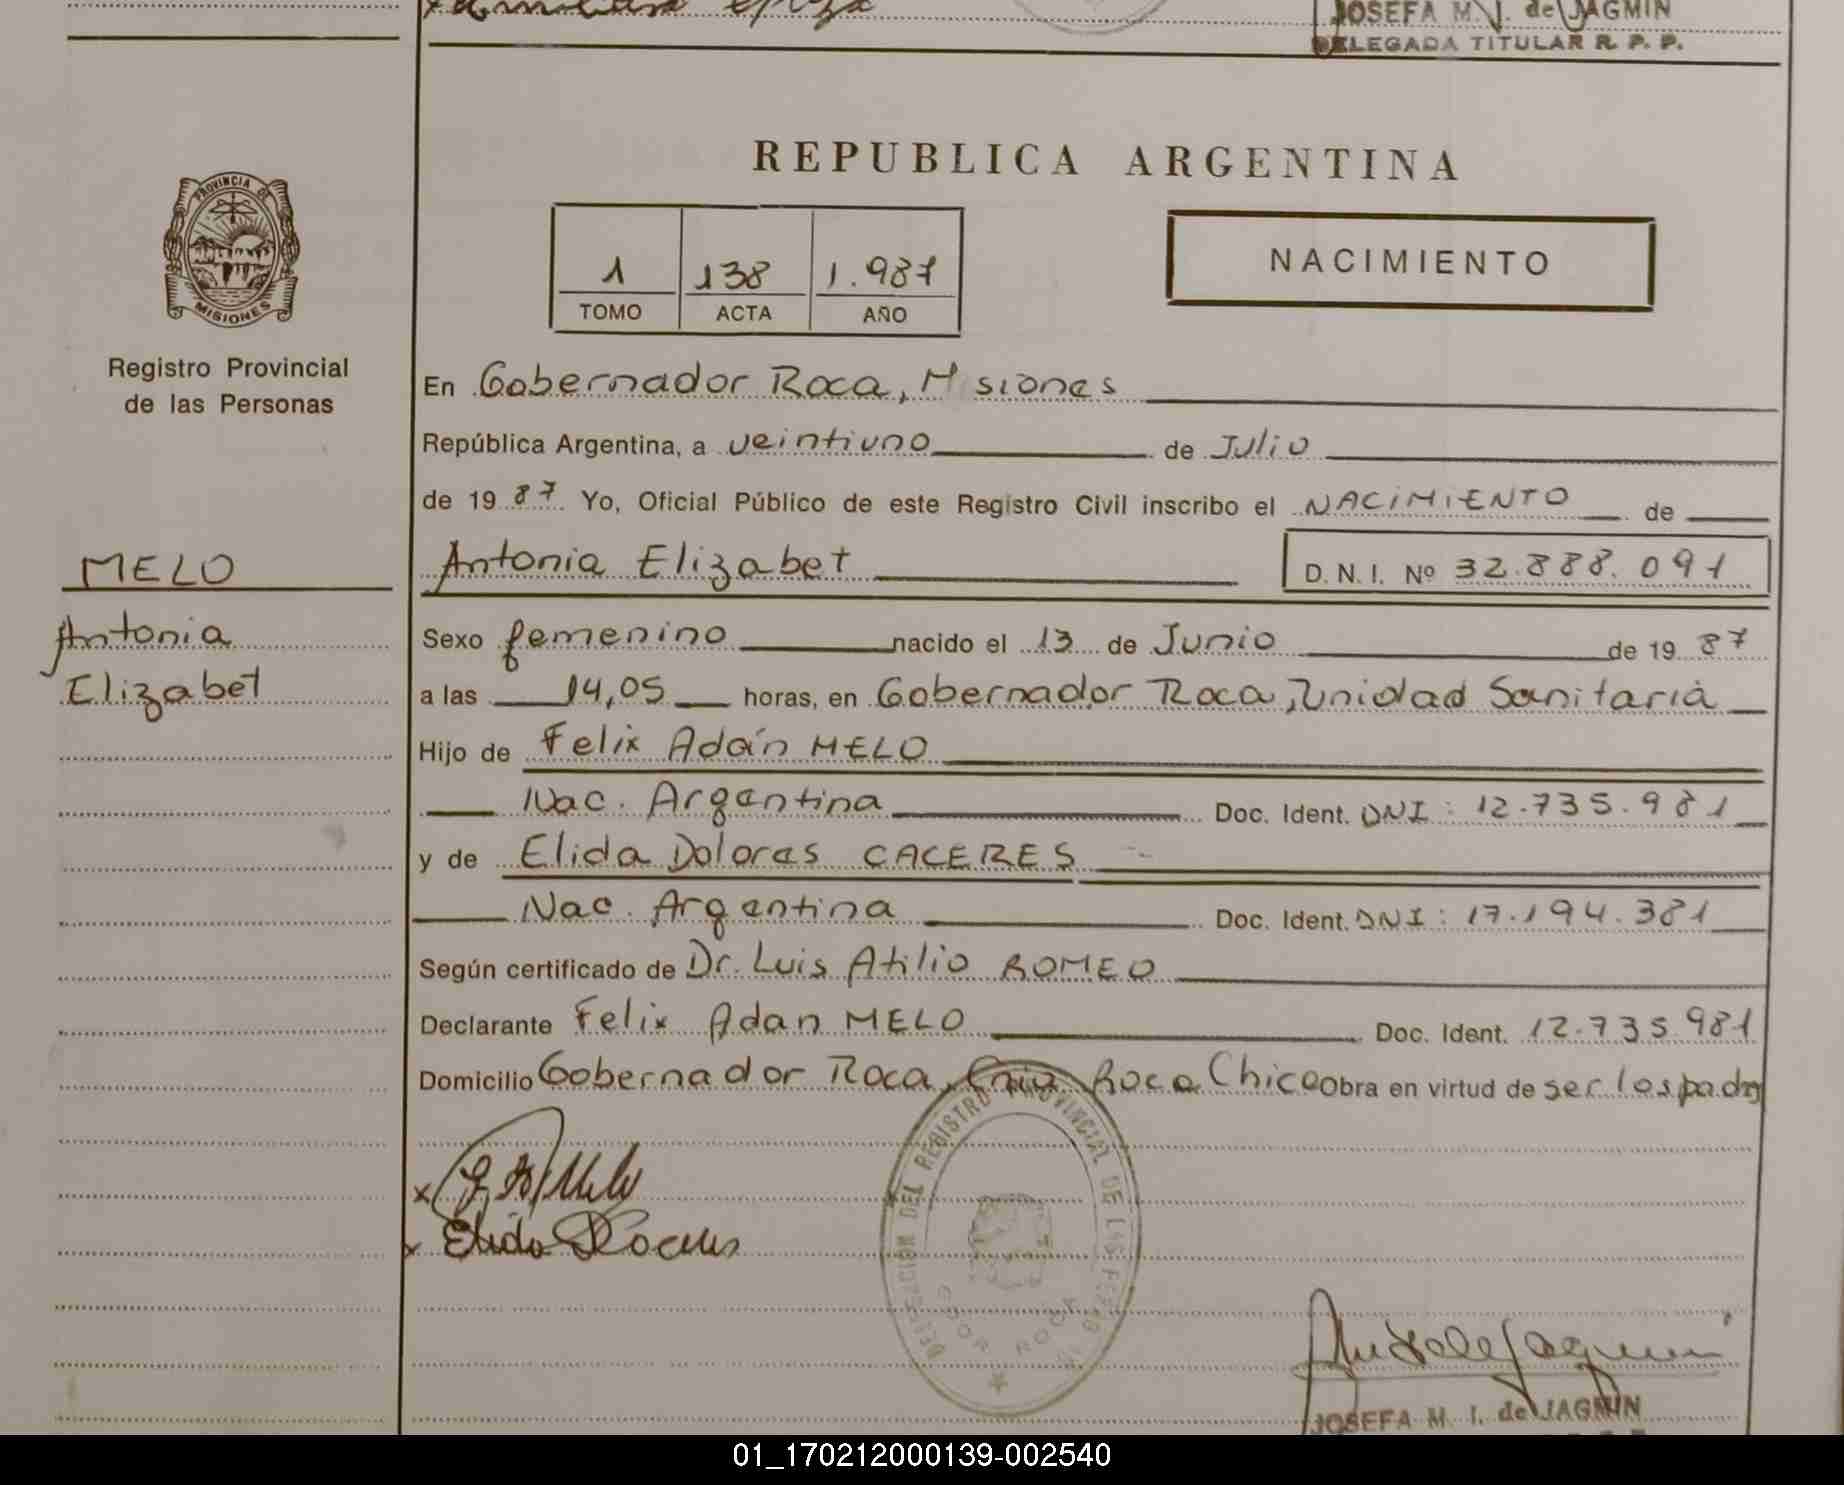 JOSEFA M. I. de JAGMIN
DELEGADA TITULAR R. P. P.
REPUBLICA ARGENTINA
PROVINCIA DE
MISIONES
Registro Provincial
de las Personas
1 138 1.987
TOMO ACTA AÑO
NACIMIENTO
En Gobernador Roca, Misiones
República Argentina, a veintiuno de Julio
de 19 87 Yo, Oficial Público de este Registro Civil inscribo el NACIMIENTO de
MELO
Antonia Elizabet D. N. I. Nº 32.888.091
Antonia
Sexo femenino nacido el 13 de Junio de 19 87
Elizabet
a las 14,05 horas, en Gobernador Roca, Unidad Sanitaria
Hijo de Felix Adán MELO
Nac. Argentina Doc. Ident. DNI: 12.735.981
y de Elida Dolores CACERES
Nac. Argentina Doc. Ident. DNI: 17.194.381
Según certificado de Dr. Luis Atilio ROMEO
Declarante Felix Adan MELO Doc. Ident. 12.735.981
Domicilio Gobernador Roca, Roca Chico obra en virtud de ser los padres
DELEGACION DEL REGISTRO PROVINCIAL DE LAS PERSONAS
GDOR ROCA
x
x Elida D Caceres
JOSEFA M. I. de JAGMIN
01_170212000139-002540